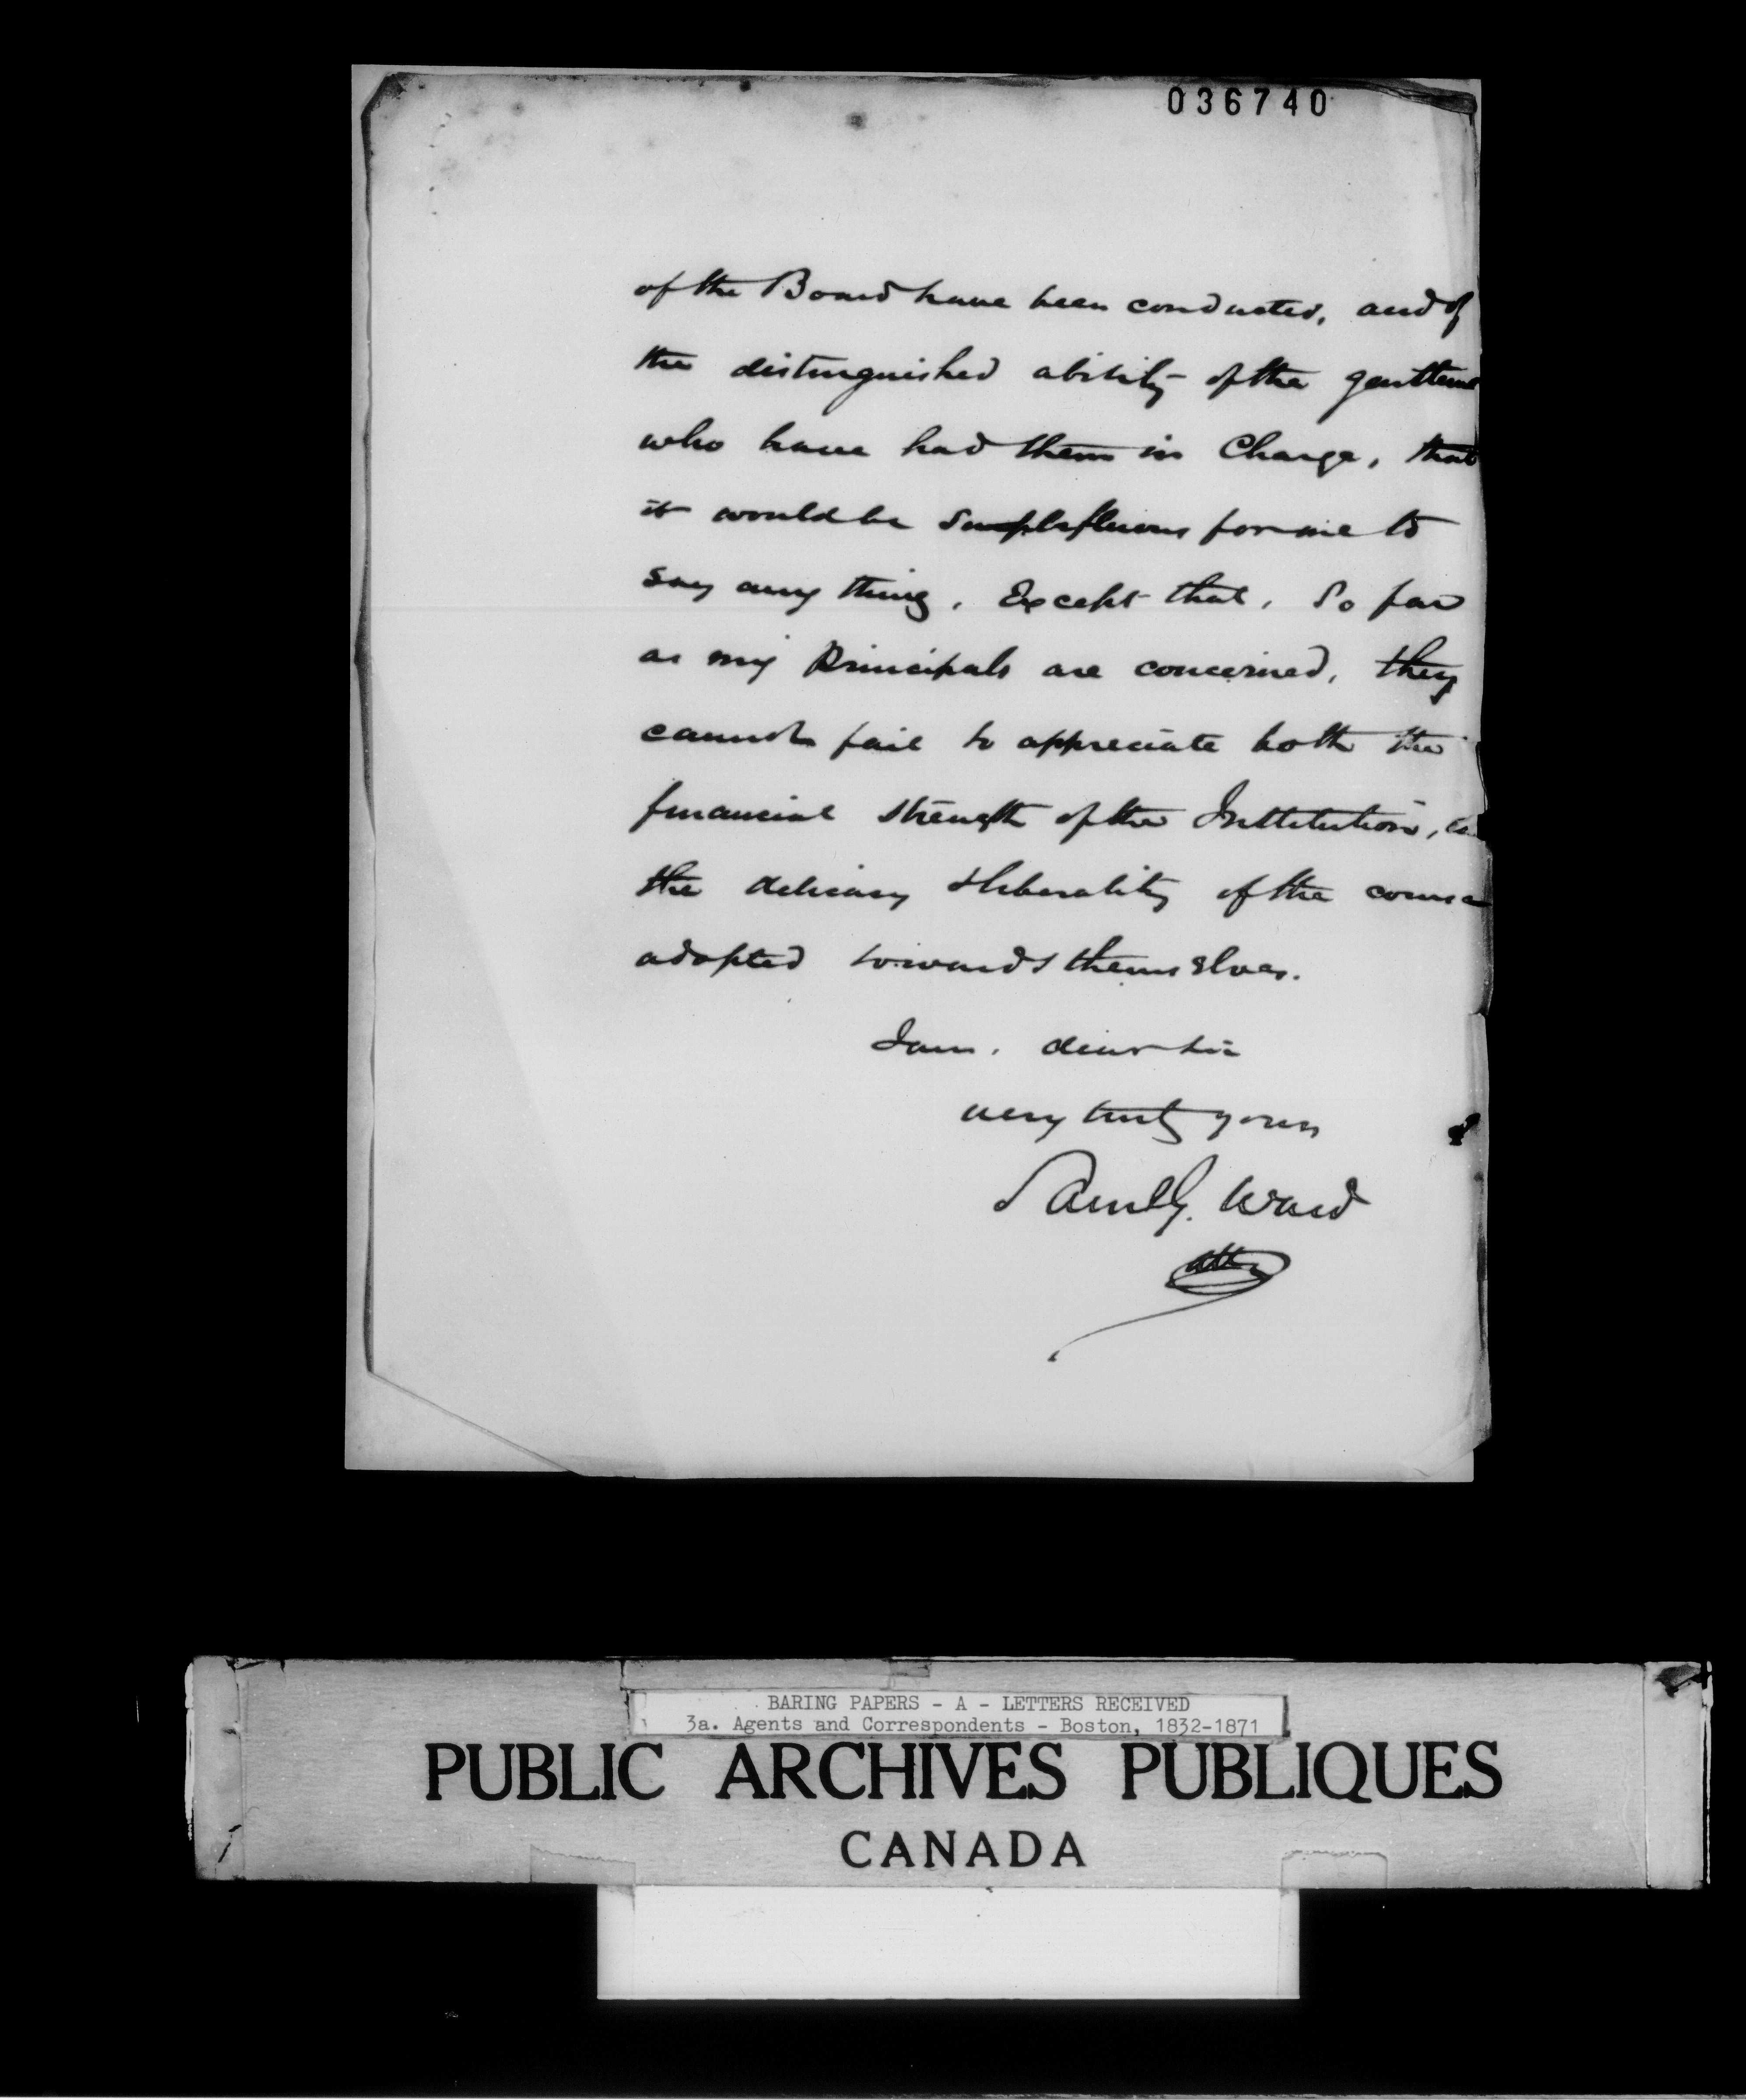 036740
of the Board have been conducted, and of
the distinguished ability of the gentleme
who have had them in Charge, that
it would be for me to
say any thing, Except that, So far
as my Principals are concerned, they
cannot fail to appreciate both the
financial strength of the Institution,
the delicacy & liberality of the course
adopted towards themselves.
I am, dear sir
very truly yours
Saml G. Ward
atty
BARING PAPERS - A - LETTERS RECEIVED
3a. Agents and Correspondents - Boston, 1832-1871
PUBLIC ARCHIVES PUBLIQUES
CANADA